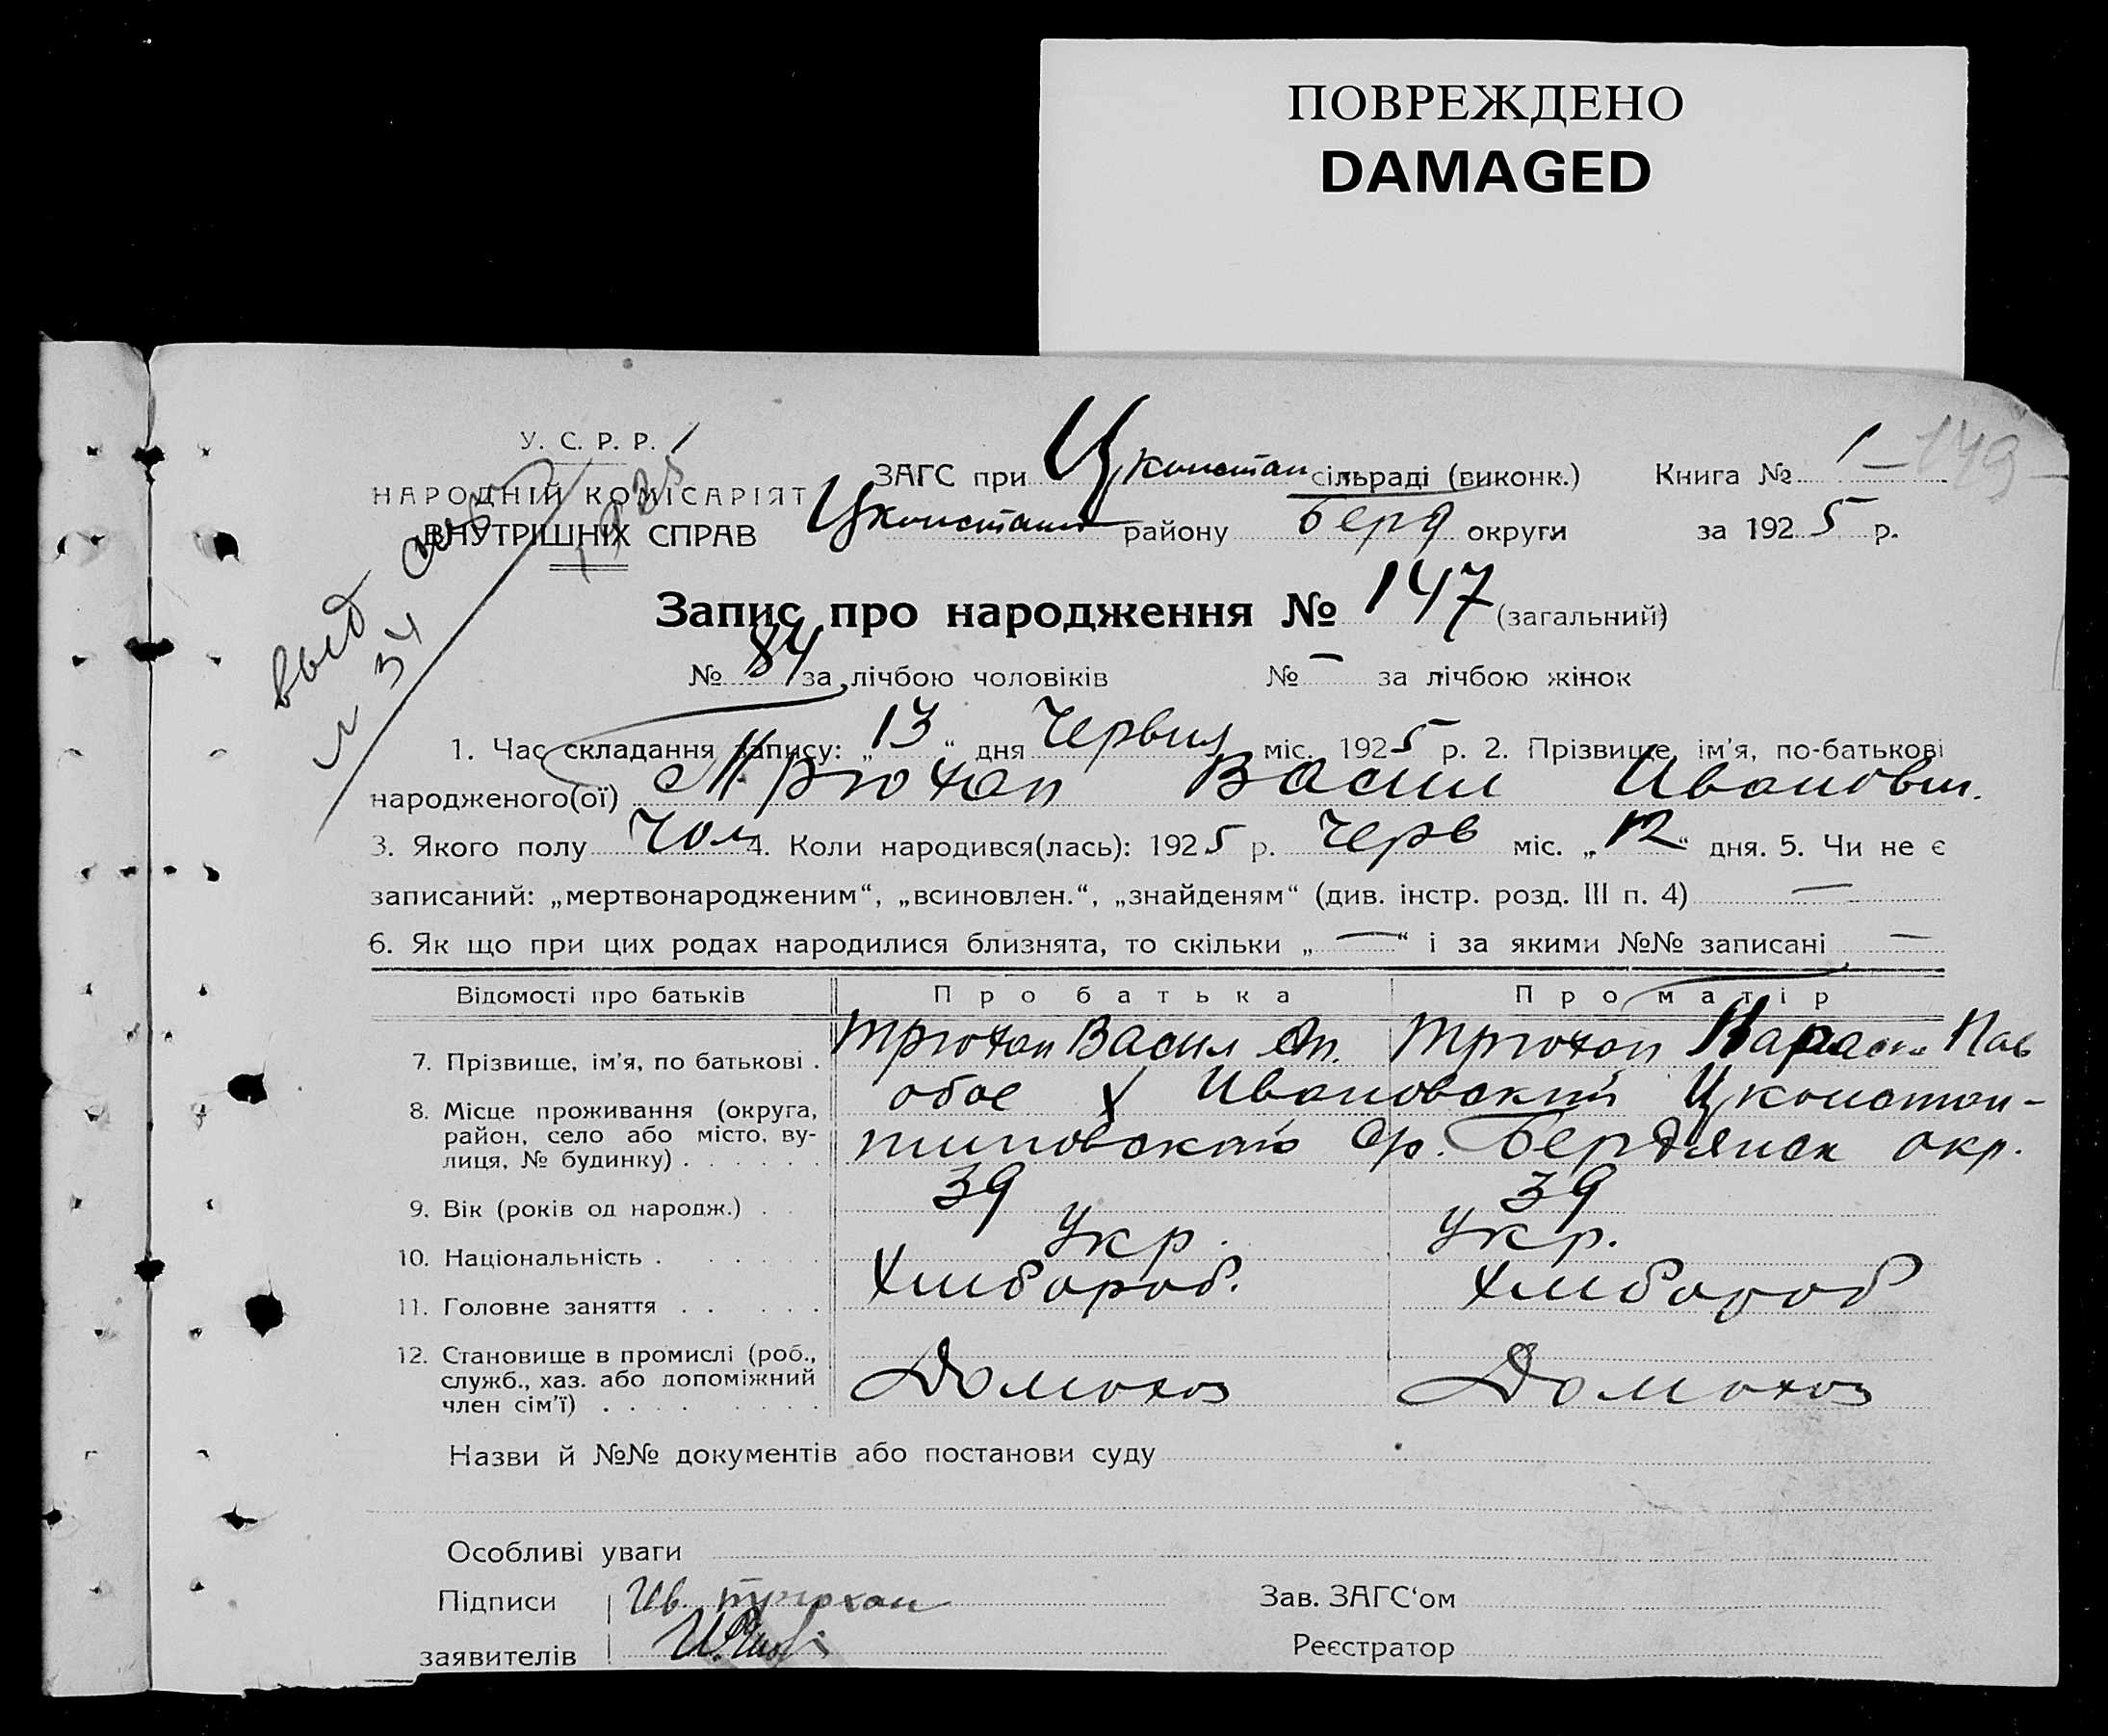 ПОВРЕЖДЕНО
DAMAGED
У. С. Р. Р.
НАРОДНІЙ КОМІСАРІЯТ
ВНУТРІШНІХ СПРАВ
ЗАГС при Цконстан сільраді (виконк.) Книга № 1 -149-
Цконстант району Берд округи за 1925 р.
выд
1925
№ 34
Запис про народження № 147 (загальний)
№ 84 за лічбою чоловіків № — за лічбою жінок
1. Час складання запису: „13“ дня Червня міс. 1925 р. 2. Прізвище, ім'я, по-батькові
народженого(ої) Трюхан Васил Иванович.
3. Якого полу Чол 4. Коли народився(лась): 1925 р. Черв міс. „12“ дня. 5. Чи не є
записаний: „мертвонародженим“, „всиновлен.“, „знайденям“ (див. інстр. розд. III п. 4) —
6. Як що при цих родах народилися близнята, то скільки „—“ і за якими №№ записані —
Відомості про батьків Про батька Про матір
7. Прізвище, ім'я, по батькові . Трюхан Васил Трюхан Параск Пав
8. Місце проживання (округа, район, село або місто, вулиця, № будинку) . . . . . . обое х Ивановский Цконстан-
тиновского р. Бердянск окр.
9. Вік (років од народж.) . . 39 39
10. Національність . . . . . . Укр. Укр.
11. Головне заняття . . . . . Хлибороб. Хлибороб
12. Становище в промислі (роб., служб., хаз. або допоміжний член сім'ї) . . . . . . . . Домохоз Домохоз
Назви й №№ документів або постанови суду
Особливі уваги
Підписи Ив. Трюхан Зав. ЗАГС'ом
заявителів Реєстратор